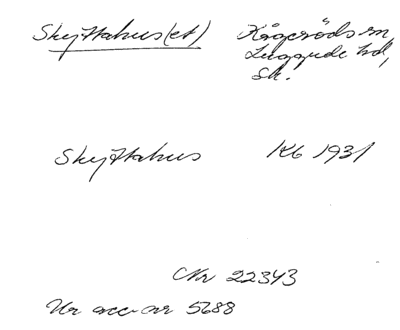 Skyttahus(et) Kågeröds sn,
Luggude hd,
Sk.
Skyttahus Kb 1931
Nr 22343
Ur acc-nr 5688